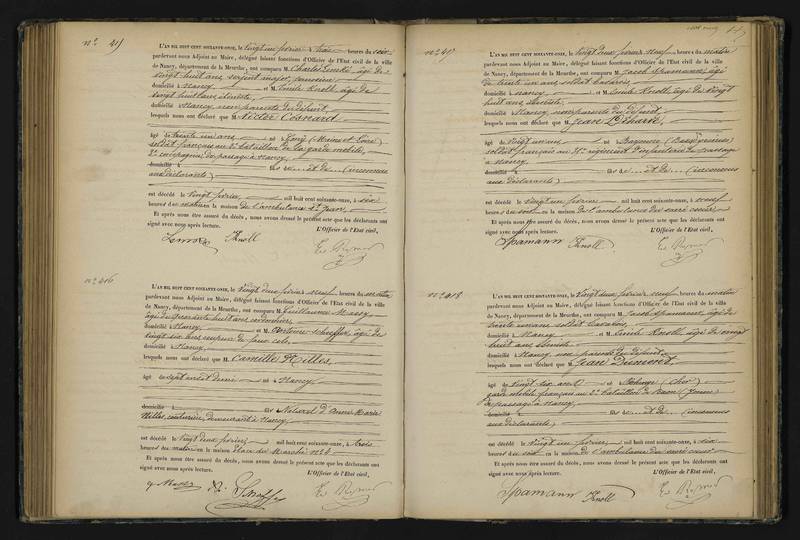 n° 415
L'AN MIL HUIT CENT SOIXANTE-ONZE, le vingt un février à trois heures du soir
pardevant nous Adjoint au Maire, délégué faisant fonctions d'Officier de l'Etat civil de la ville
de Nancy, département de la Meurthe, ont comparu M. Charles âgé de
vingt huit ans, sergent major,
domicilié à Nancy et M. Emile Knoll âgé de
vingt huit ans,
domicilié à Nancy, non parents du défunt,
lesquels nous ont déclaré que M. Victor Cosnard
âgé de trente un ans né à (Maine et Loire)
soldat français au 2e bataillon de la garde mobile,
compagnie, de passage à Nancy,
domicilié à fils de et de (inconnus
aux déclarants)
est décédé le vingt février mil huit cent soixante-onze, à six
heures du matin en la maison de l'ambulance St Jean,
Et après nous être assuré du décès, nous avons dressé le présent acte que les déclarants ont
signé avec nous après lecture. L'Officier de l'Etat civil,
Knoll
n° 416
L'AN MIL HUIT CENT SOIXANTE-ONZE, le vingt deux février à neuf heures du matin
pardevant nous Adjoint au Maire, délégué faisant fonctions d'Officier de l'Etat civil de la ville
de Nancy, département de la Meurthe, ont comparu M. Guillaume Massy
âgé de quarante huit ans cordonnier,
domicilié à Nancy et M. Antoine âgé de
vingt six ans
domicilié à Nancy,
lesquels nous ont déclaré que M. Camille Hilles,
âgé de sept ans et demi né à Nancy
domicilié à fils Naturel d'Anne Marie
Hilles, couturière, demeurant à Nancy,
est décédé le vingt deux février, mil huit cent soixante-onze, à trois
heures du matin en la maison place du Marché n° 4
Et après nous être assuré du décès, nous avons dressé le présent acte que les déclarants ont
signé avec nous après lecture. L'Officier de l'Etat civil,
n° 417
L'AN MIL HUIT CENT SOIXANTE-ONZE, le vingt deux février à neuf heures du matin
pardevant nous Adjoint au Maire, délégué faisant fonctions d'Officier de l'Etat civil de la ville
de Nancy, département de la Meurthe, ont comparu M. Jacob Spamann, âgé
de trente un ans soldat bavarois,
domicilié à Nancy et M. Emile Knoll, âgé de vingt
huit ans,
domicilié à Nancy, non parents du défunt
lesquels nous ont déclaré que M. Jean
âgé de vingt un ans né à Bayonne (Basses Pyrénées)
soldat français au régiment d'infanterie de passage
à Nancy
domicilié à fils de et de (inconnus
aux déclarants)
est décédé le vingt un février mil huit cent soixante-onze, à neuf
heures du soir en la maison de l'ambulance du sacré coeur
Et après nous être assuré du décès, nous avons dressé le présent acte que les déclarants ont
signé avec nous après lecture. L'Officier de l'Etat civil,
Spamann Knoll
n° 418
L'AN MIL HUIT CENT SOIXANTE-ONZE, le vingt deux février à neuf heures du matin
pardevant nous Adjoint au Maire, délégué faisant fonctions d'Officier de l'Etat civil de la ville
de Nancy, département de la Meurthe, ont comparu M. Jacob Spamann, âgé de
trente un ans soldat bavarois,
domicilié à Nancy et M. Emile Knoll âgé de vingt
huit ans
domicilié à Nancy, non parents du défunt
lesquels nous ont déclaré que M. Jean
âgé de vingt six ans né à (Cher)
garde mobile français au 2e bataillon de
de passage à Nancy
domicilié à fils de et de (inconnus
aux déclarants)
est décédé le vingt un février, mil huit cent soixante-onze, à six
heures du soir en la maison de l'ambulance du sacré coeur
Et après nous être assuré du décès, nous avons dressé le présent acte que les déclarants ont
signé avec nous après lecture. L'Officier de l'Etat civil,
Spamann Knoll